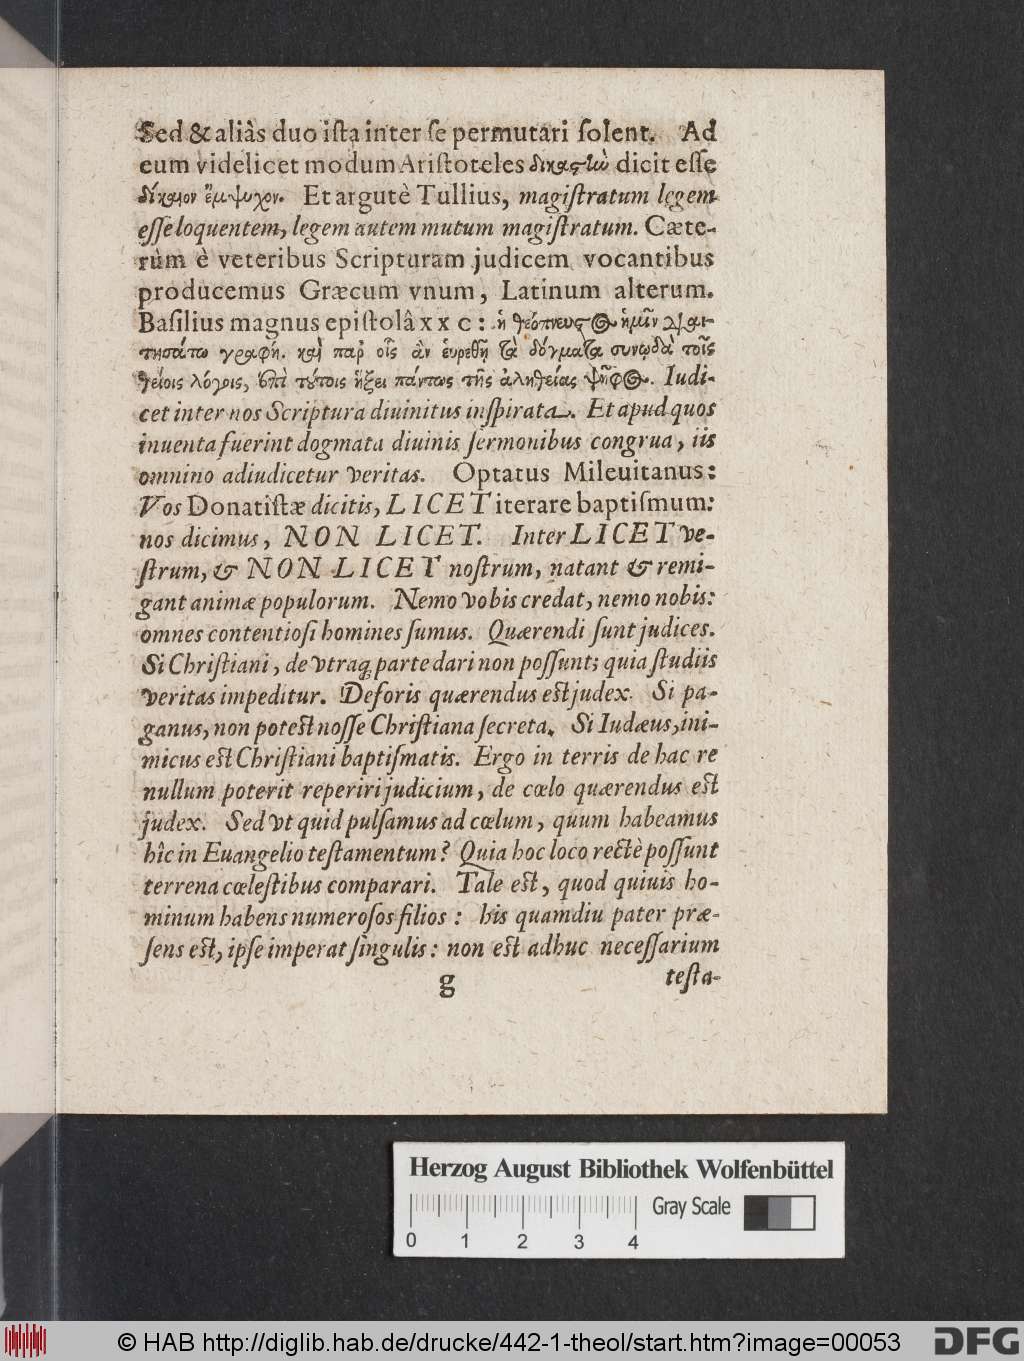 Sed & aliàs duo iſta inter ſe permutari ſolent. Ad
eum videlicet modum Ariſtoteles δικαστὼ dicit eſſe
δίκαιον ἔμψυχον. Et argutè Tullius, magiſtratum legem
eſſe loquentem, legem autem mutum magiſtratum. Cæte-
rùm è veteribus Scripturam judicem vocantibus
producemus Græcum vnum, Latinum alterum.
Baſilius magnus epiſtolâ x x c : ἡ θεόπνευστος ἡμῖν διαι-
τησάτω γραφή. καὶ παρ οἷς ἂν ἑυρεθῇ τὰ δόγματα συνῳδὰ τοῖς
θείοις λόγοις, ἐπὶ τούτοις ἥξει πάντως τῆς ἀληθείας ψῆφος. Iudi-
cet inter nos Scriptura diuinitus inſpirata. Et apud quos
inuenta fuerint dogmata diuinis ſermonibus congrua, iis
omnino adiudicetur veritas. Optatus Mileuitanus:
Vos Donatiſtæ dicitis, LICET iterare baptiſmum:
nos dicimus, NON LICET. Inter LICET ve-
ſtrum, & NON LICET noſtrum, natant & remi-
gant animæ populorum. Nemo vobis credat, nemo nobis:
omnes contentioſi homines ſumus. Quærendi ſunt judices.
Si Chriſtiani, de vtraq; parte dari non poſſunt; quia ſtudiis
veritas impeditur. Deforis quærendus eſt judex. Si pa-
ganus, non poteſt noſſe Chriſtiana ſecreta. Si Iudæus, ini-
micus eſt Chriſtiani baptiſmatis. Ergo in terris de hac re
nullum poterit reperiri judicium, de cœlo quærendus eſt
judex. Sed vt quid pulſamus ad cœlum, quum habeamus
hîc in Euangelio teſtamentum? Quia hoc loco rectè poſſunt
terrena cœleſtibus comparari. Tale eſt, quod quiuis ho-
minum habens numeroſos filios : his quamdiu pater præ-
ſens eſt, ipſe imperat ſingulis : non eſt adhuc neceſſarium
g teſta-
Herzog August Bibliothek Wolfenbüttel
Gray Scale
0 1 2 3 4
© HAB http://diglib.hab.de/drucke/442-1-theol/start.htm?image=00053
DFG